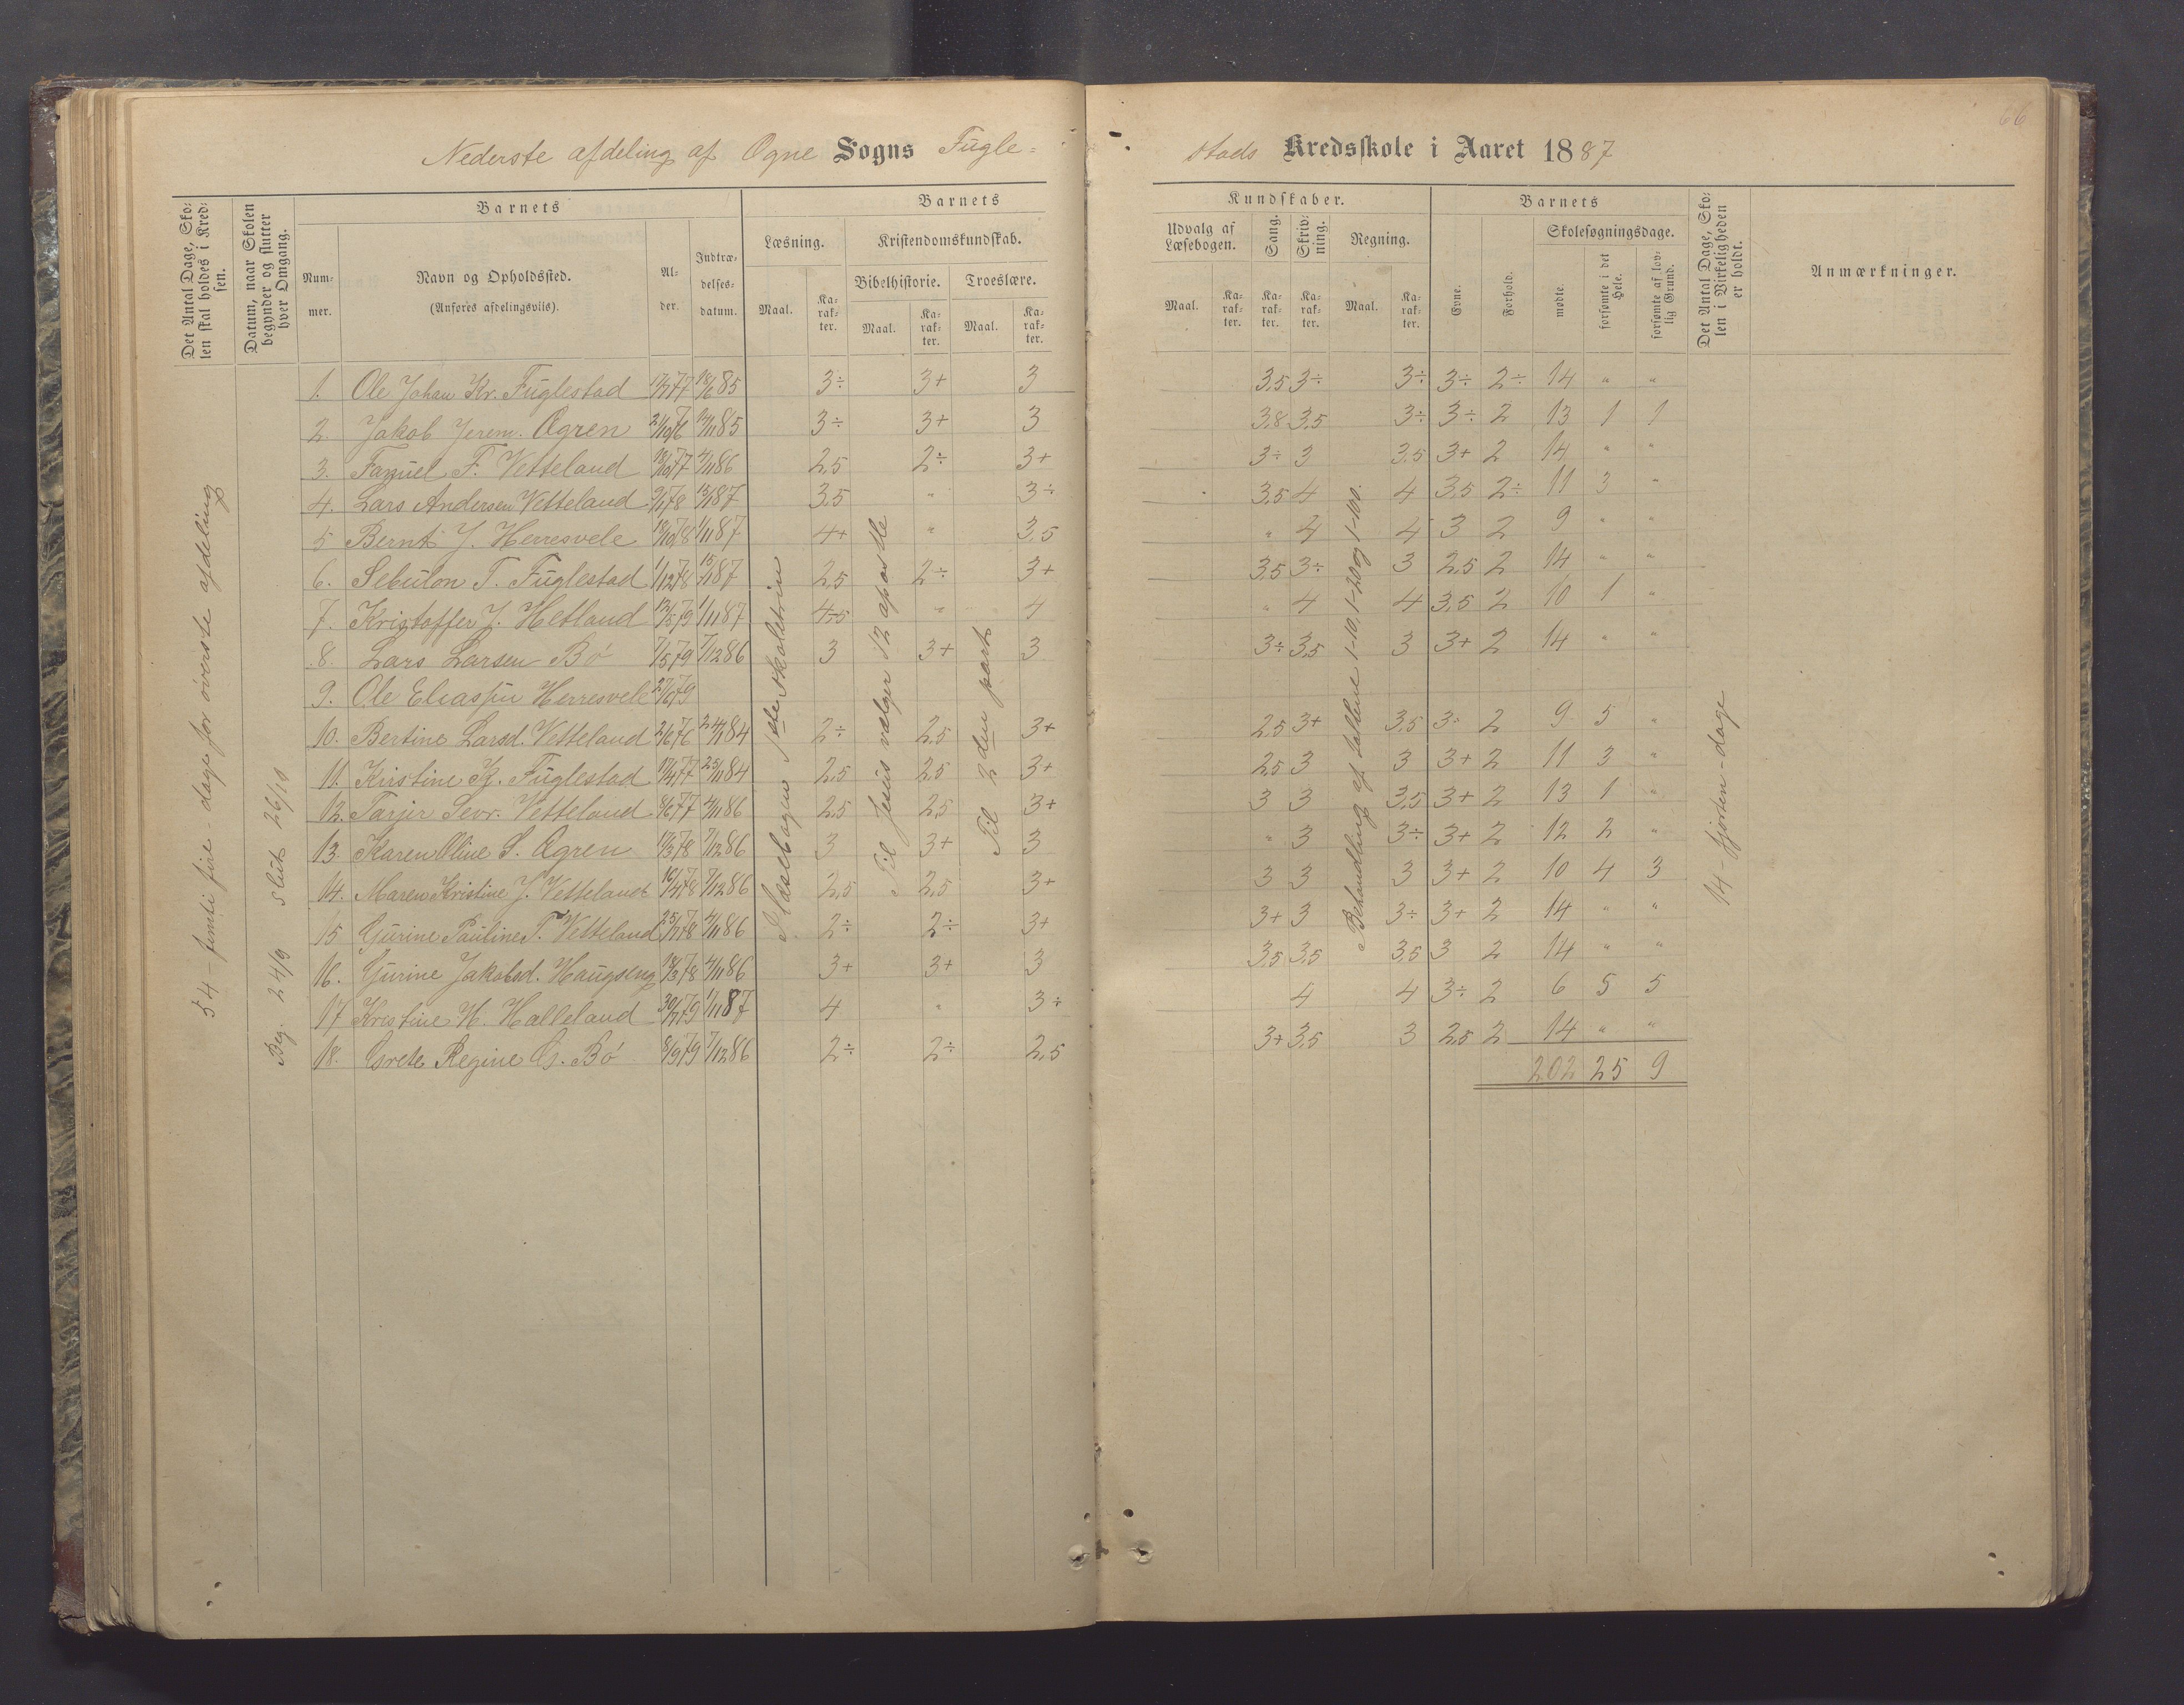 Nederste afdeling af Ogne Sogns Fugle-
stads Kredsskole i Aaret 1887
66
Det Antal Dage, Skolen skal holdes i Kredsen.
Datum, naar Skolen begynder og slutter hver Omgang.
Barnets
Nummer.
Navn og Opholdssted.
(Anføres afdelingsvils).
Alder.
Indtrædelsesdatum.
Barnets
Læsning.
Maal.
Karakter.
Kristendomskundskab.
Bibelhistorie.
Maal.
Karakter.
Troeslære.
Maal.
Karakter.
Kundskaber.
Udvalg af Læsebogen.
Maal.
Karakter.
Sang.
Karakter.
Skrivning.
Karakter.
Regning.
Maal.
Karakter.
Barnets
Evne.
Forhold.
Skolesøgningsdage.
mødte.
forsømte i det Hele.
forsømte af lovlig Grund.
Det Antal Dage, Skolen i Virkeligheden er holdt.
Anmærkninger.
54 - femti fire - dage for øverste afdeling
Beg. 24/9 slut 26/10
I. Læsebogens 1ste skoletrin
Til Jesus vælger 12 apostle
Til 2den part
Behandling af tallene 1-10, 1-20 og 1-100.
14 - fjorten - dage
1. Ole Johan Kr. Fuglestad 17/7 77 18/6 85 3÷ 3+ 3 3,5 3÷ 3÷ 3÷ 2÷ 14 " "
2. Jakob Jerem. Ogren 2/10 76 12/11 85 3÷ 3+ 3 3,8 3,5 3÷ 3÷ 2 13 1 1
3. Samuel F. Vetteland 18/10 77 4/11 86 2,5 2÷ 3+ 3÷ 3 3,5 3+ 2 14 " "
4. Lars Andersen Vetteland 9/1 78 15/1 87 3,5 " 3÷ 3,5 4 4 3,5 2÷ 11 3 "
5 Bernt J. Herresvele 18/10 78 1/11 87 4+ " 3,5 " 4 4 3 2 9 " "
6. Sebulon T. Fuglestad 1/12 78 15/1 87 2,5 2÷ 3+ 3,5 3÷ 3 2,5 2 14 " "
7. Kristoffer J. Hetland 12/5 79 1/11 87 4-5 " 4 " 4 4 3,5 2 10 1 "
8. Lars Larsen Bø 7/5 79 7/12 86 3 3+ 3 3÷ 3,5 3 3+ 2 14 " "
9. Ole Eliassen Herresvele 27/6 79
10. Bertine Larsd. Vetteland 2/6 76 24/1 84 2÷ 2,5 3+ 2,5 3+ 3,5 3÷ 2 9 5 "
11. Kirstine K. Fuglestad 17/4 77 25/11 84 2,5 2,5 3+ 2,5 3 3 3+ 2 11 3 "
12. Tarjer Sevr. Vetteland 8/6 77 4/11 86 2,5 2,5 3+ 3 3 3,5 3+ 2 13 1 "
13. Karen Oline S. Ogren 17/3 78 7/12 86 3 3+ 3 " 3 3÷ 3+ 2 12 2 "
14. Maren Kristine J. Vetteland 16/4 78 7/12 86 2,5 2,5 3+ 3 3 3 3+ 2 10 4 3
15 Gurine Pauline T. Vetteland 25/7 78 4/11 86 2÷ 2÷ 3+ 3+ 3 3÷ 3+ 2 14 " "
16. Gurine Jakobsd. Haugseng 18/3 78 4/11 86 3+ 3+ 3 3,5 3,5 3,5 3 2 14 " "
17 Kristine H. Halleland 30/7 79 1/11 87 4 " 3÷ 4 4 3÷ 2 6 5 5
18. Grete Regine G. Bø 8/9 79 7/12 86 2÷ 2÷ 2,5 3+ 3,5 3 2,5 2 14 " "
202 25 9